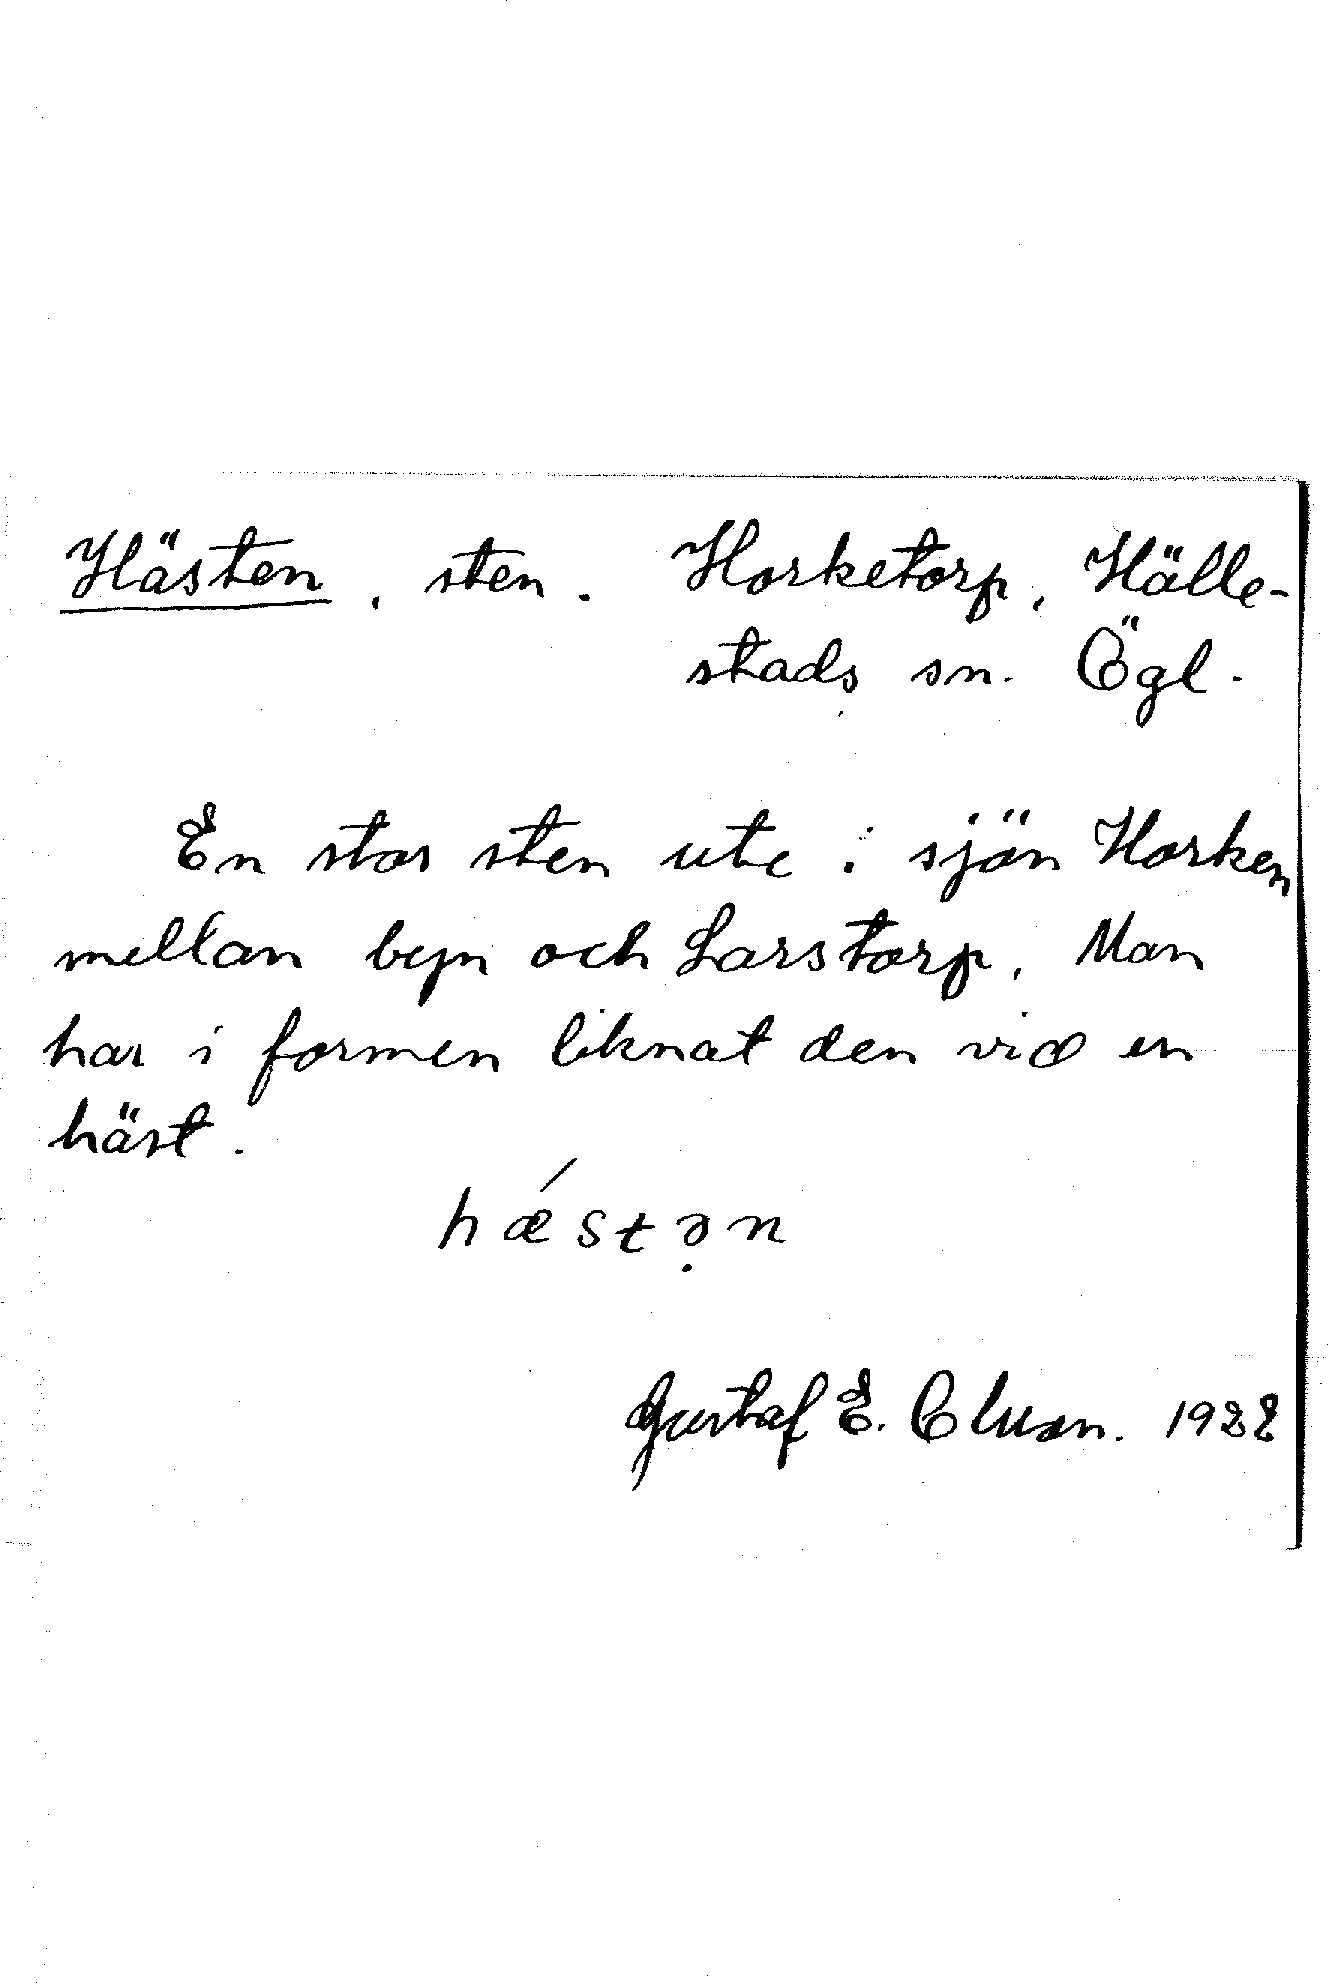 Hästen, sten. Horketorp, Hälle-
stads sn. Ögl.
En stor sten ute i sjön Horken
mellan byn och Larstorp. Man
har i formen liknat den vid en
häst.
hǽstə̣n
Gustaf E. 1922